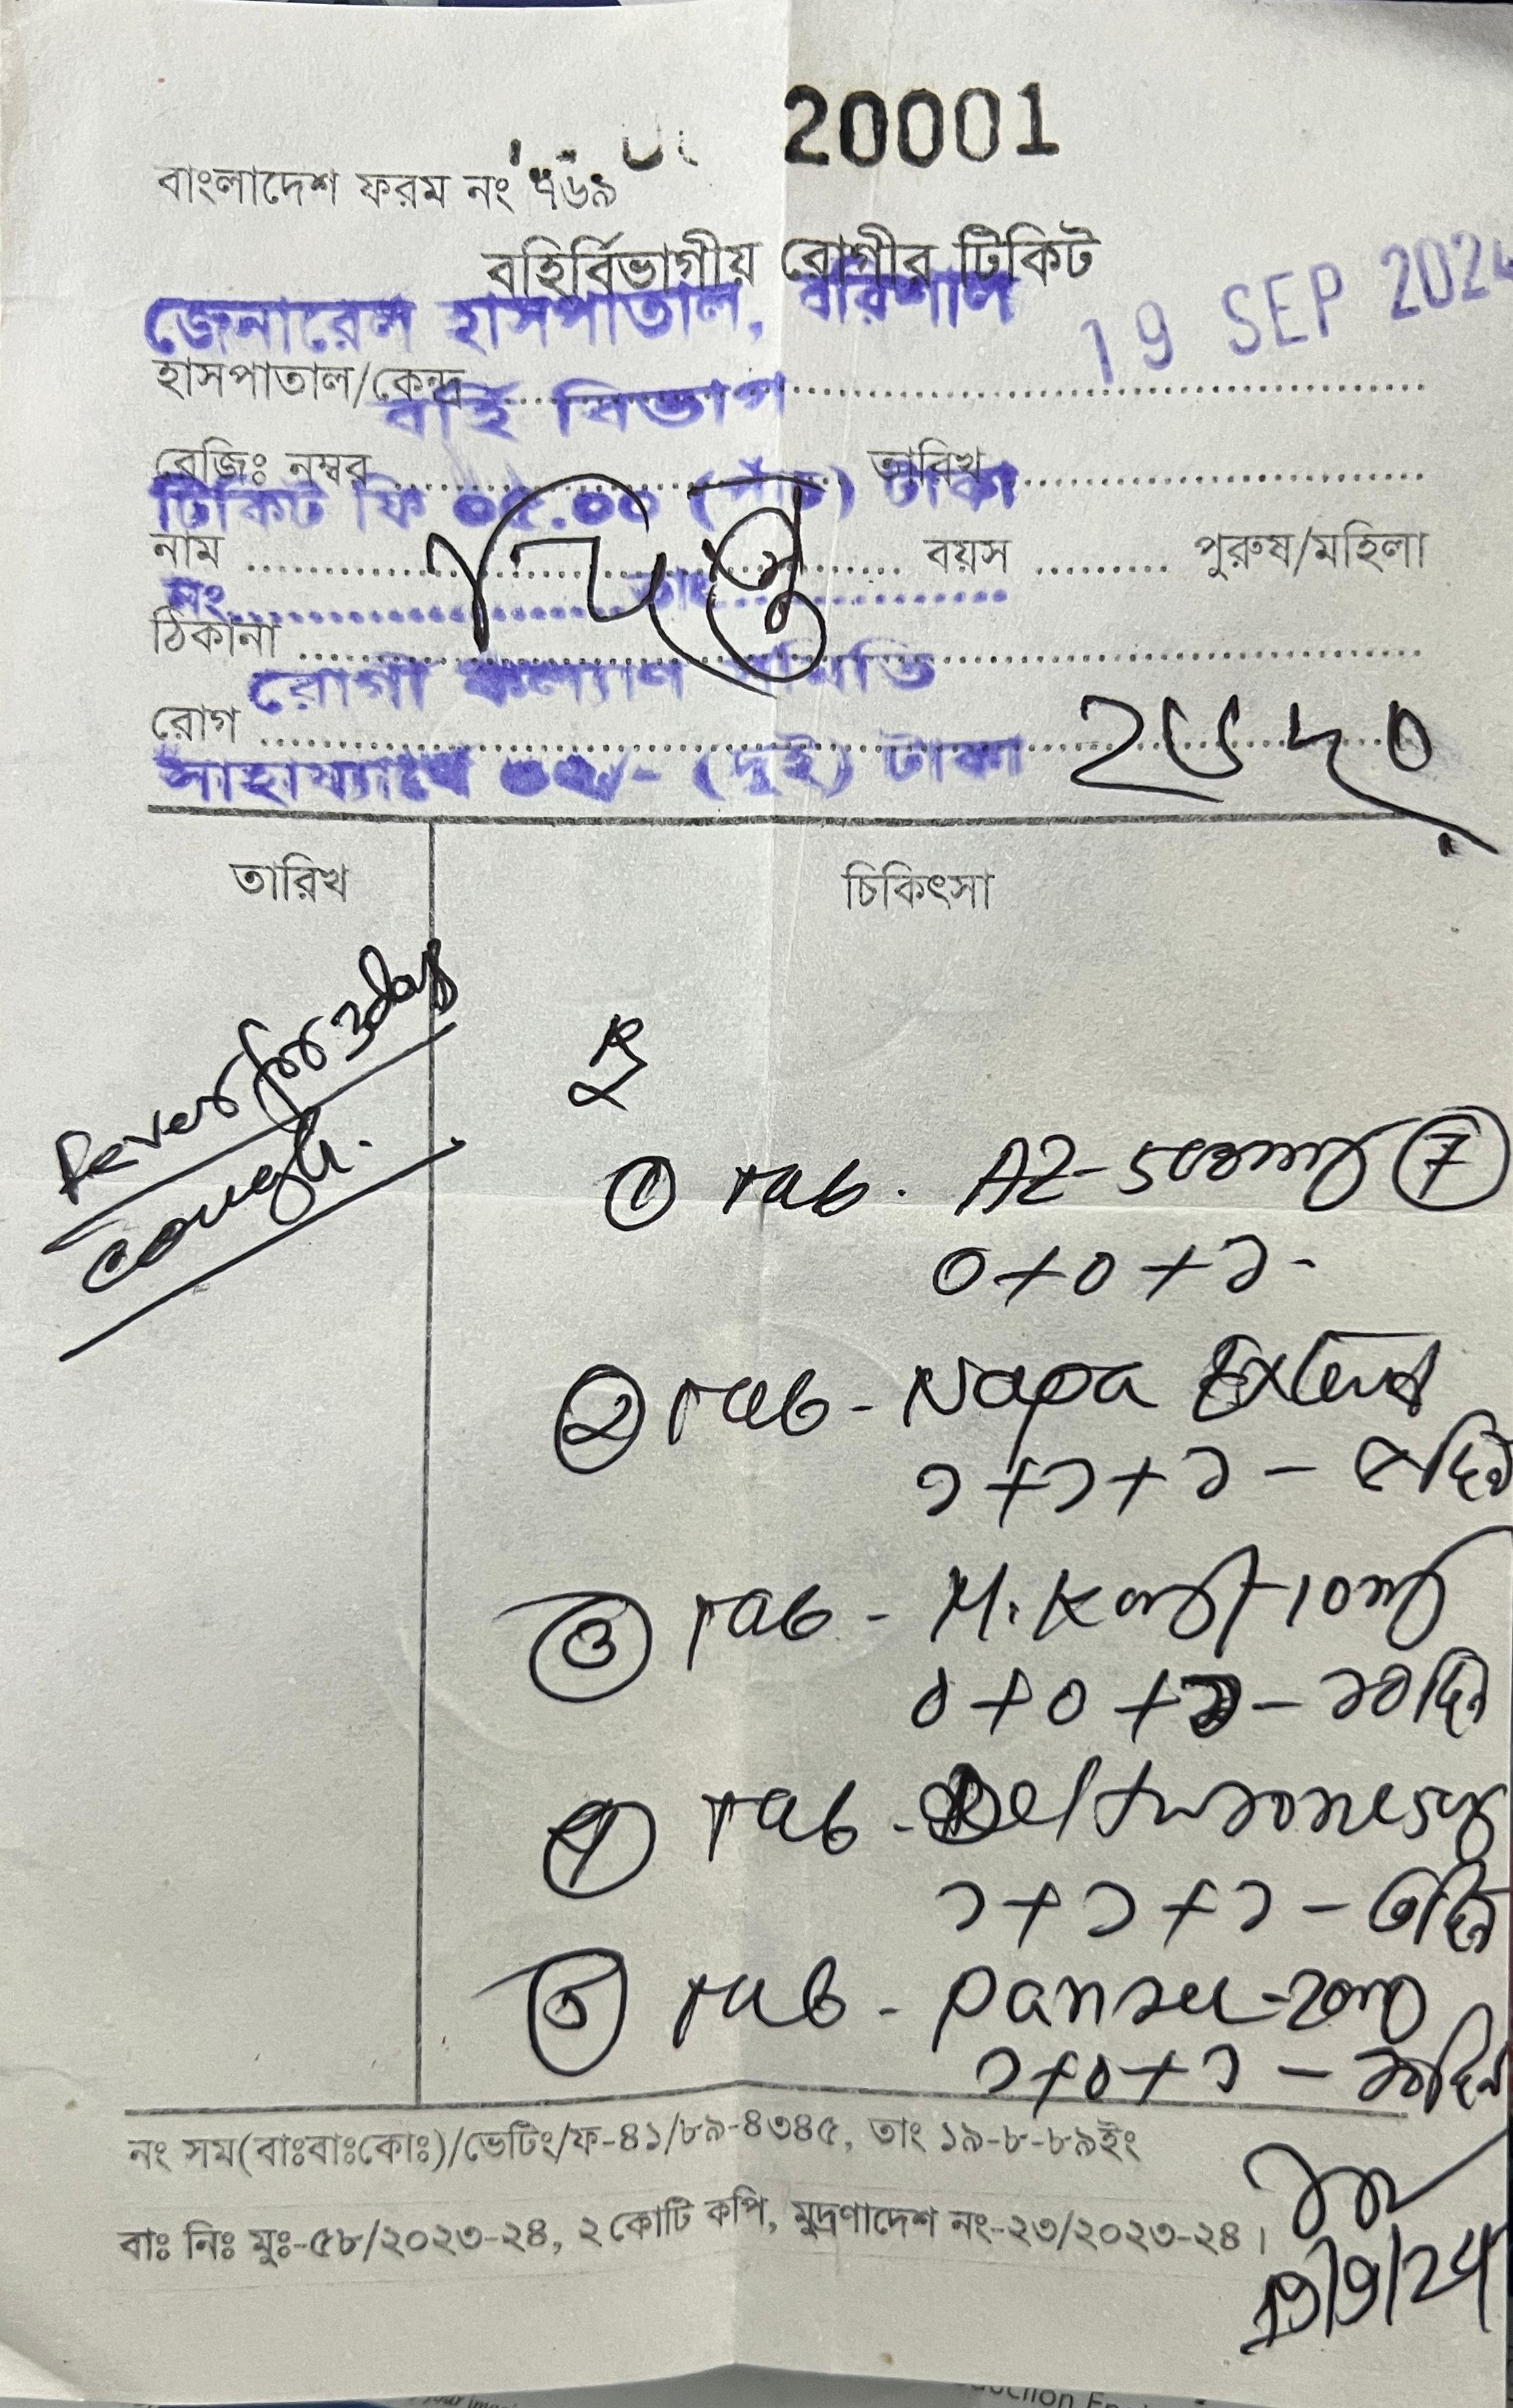 20001
বাংলাদেশ ফরম নং ৭৬৯
বহির্বিভাগীয় রোগীর টিকিট
জেনারেল হাসপাতাল, বরিশাল
19 SEP 2024
হাসপাতাল/কেন্দ্র
বহিঃ বিভাগ
রেজিঃ নম্বর তারিখ
টিকিট ফি ০৫.০০ (পাঁচ) টাকা
নাম বয়স পুরুষ/মহিলা
নং তাং
ঠিকানা
রোগী কল্যাণ সমিতি
রোগ
সাহায্যার্থে ০২/- (দুই) টাকা
তারিখ চিকিৎসা
Fever for 3 days
cough.
① Tab. AZ-500mg ⑦
০+০+১-
② Tab- Napa Extend
১+১+১ - ৫দিন
③ Tab- M.Kast-10mg
০+০+১ - ১০দিন
④ Tab- Deltasone 5mg
১+১+১ - ৩দিন
⑤ Tab- 20mg
১+০+১ - ১০দিন
নং সম(বাঃবাঃকোঃ)/ভেটিং/ফ-৪১/৮৯-৪৩৪৫, তাং ১৯-৮-৮৯ইং
বাঃ নিঃ মুঃ-৫৮/২০২৩-২৪, ২ কোটি কপি, মুদ্রণাদেশ নং-২৩/২০২৩-২৪।
19/9/24